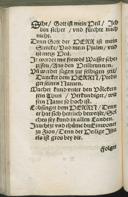 Sihe / Gott ist mein Heil / Ich
bin sicher / und fürchte mich
nicht.
Denn Gott der HERR ist mein
Stercke / und mein Psalm / und
ist mein Heil.
Ir werdet mit freuden Wasser schepf-
fen / Aus den Heilbrunnen.
Und werdet sagen zur selbigen zeit /
Dancket dem HERRN / Predi-
get seinen Namen.
Machet kund unter den Völckern
sein Thun / Verkündiget / wie
sein Name so hoch ist.
Lobsinget dem HERRN / Denn
er hat sich herrlich beweiset / Sol-
ches sey kund in allen Landen.
Jauchtze und rhüme du Einwonerin
zu Zion / Denn der Heilige Isra-
els ist gros bey dir.
Folget